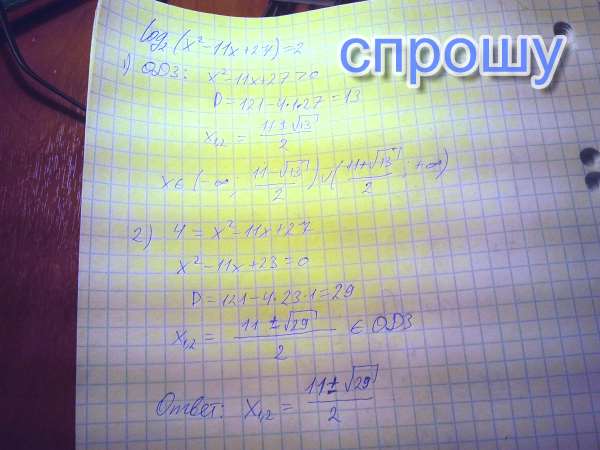 log₂(x²-11x+27)=2
спрошу
1) ОДЗ: x²-11x+27>0
D=121-4·1·27=13
x₁,₂ = (11±√13)/2
x∈(-∞; (11-√13)/2)∪((11+√13)/2; +∞)
2) 4=x²-11x+27
x²-11x+23=0
D=121-4·23·1=29
x₁,₂ = (11±√29)/2 ∈ ОДЗ
Ответ: x₁,₂ = (11±√29)/2